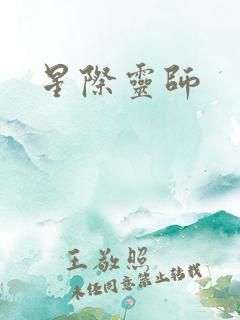 星際靈師
王敬照
未经同意禁止转载